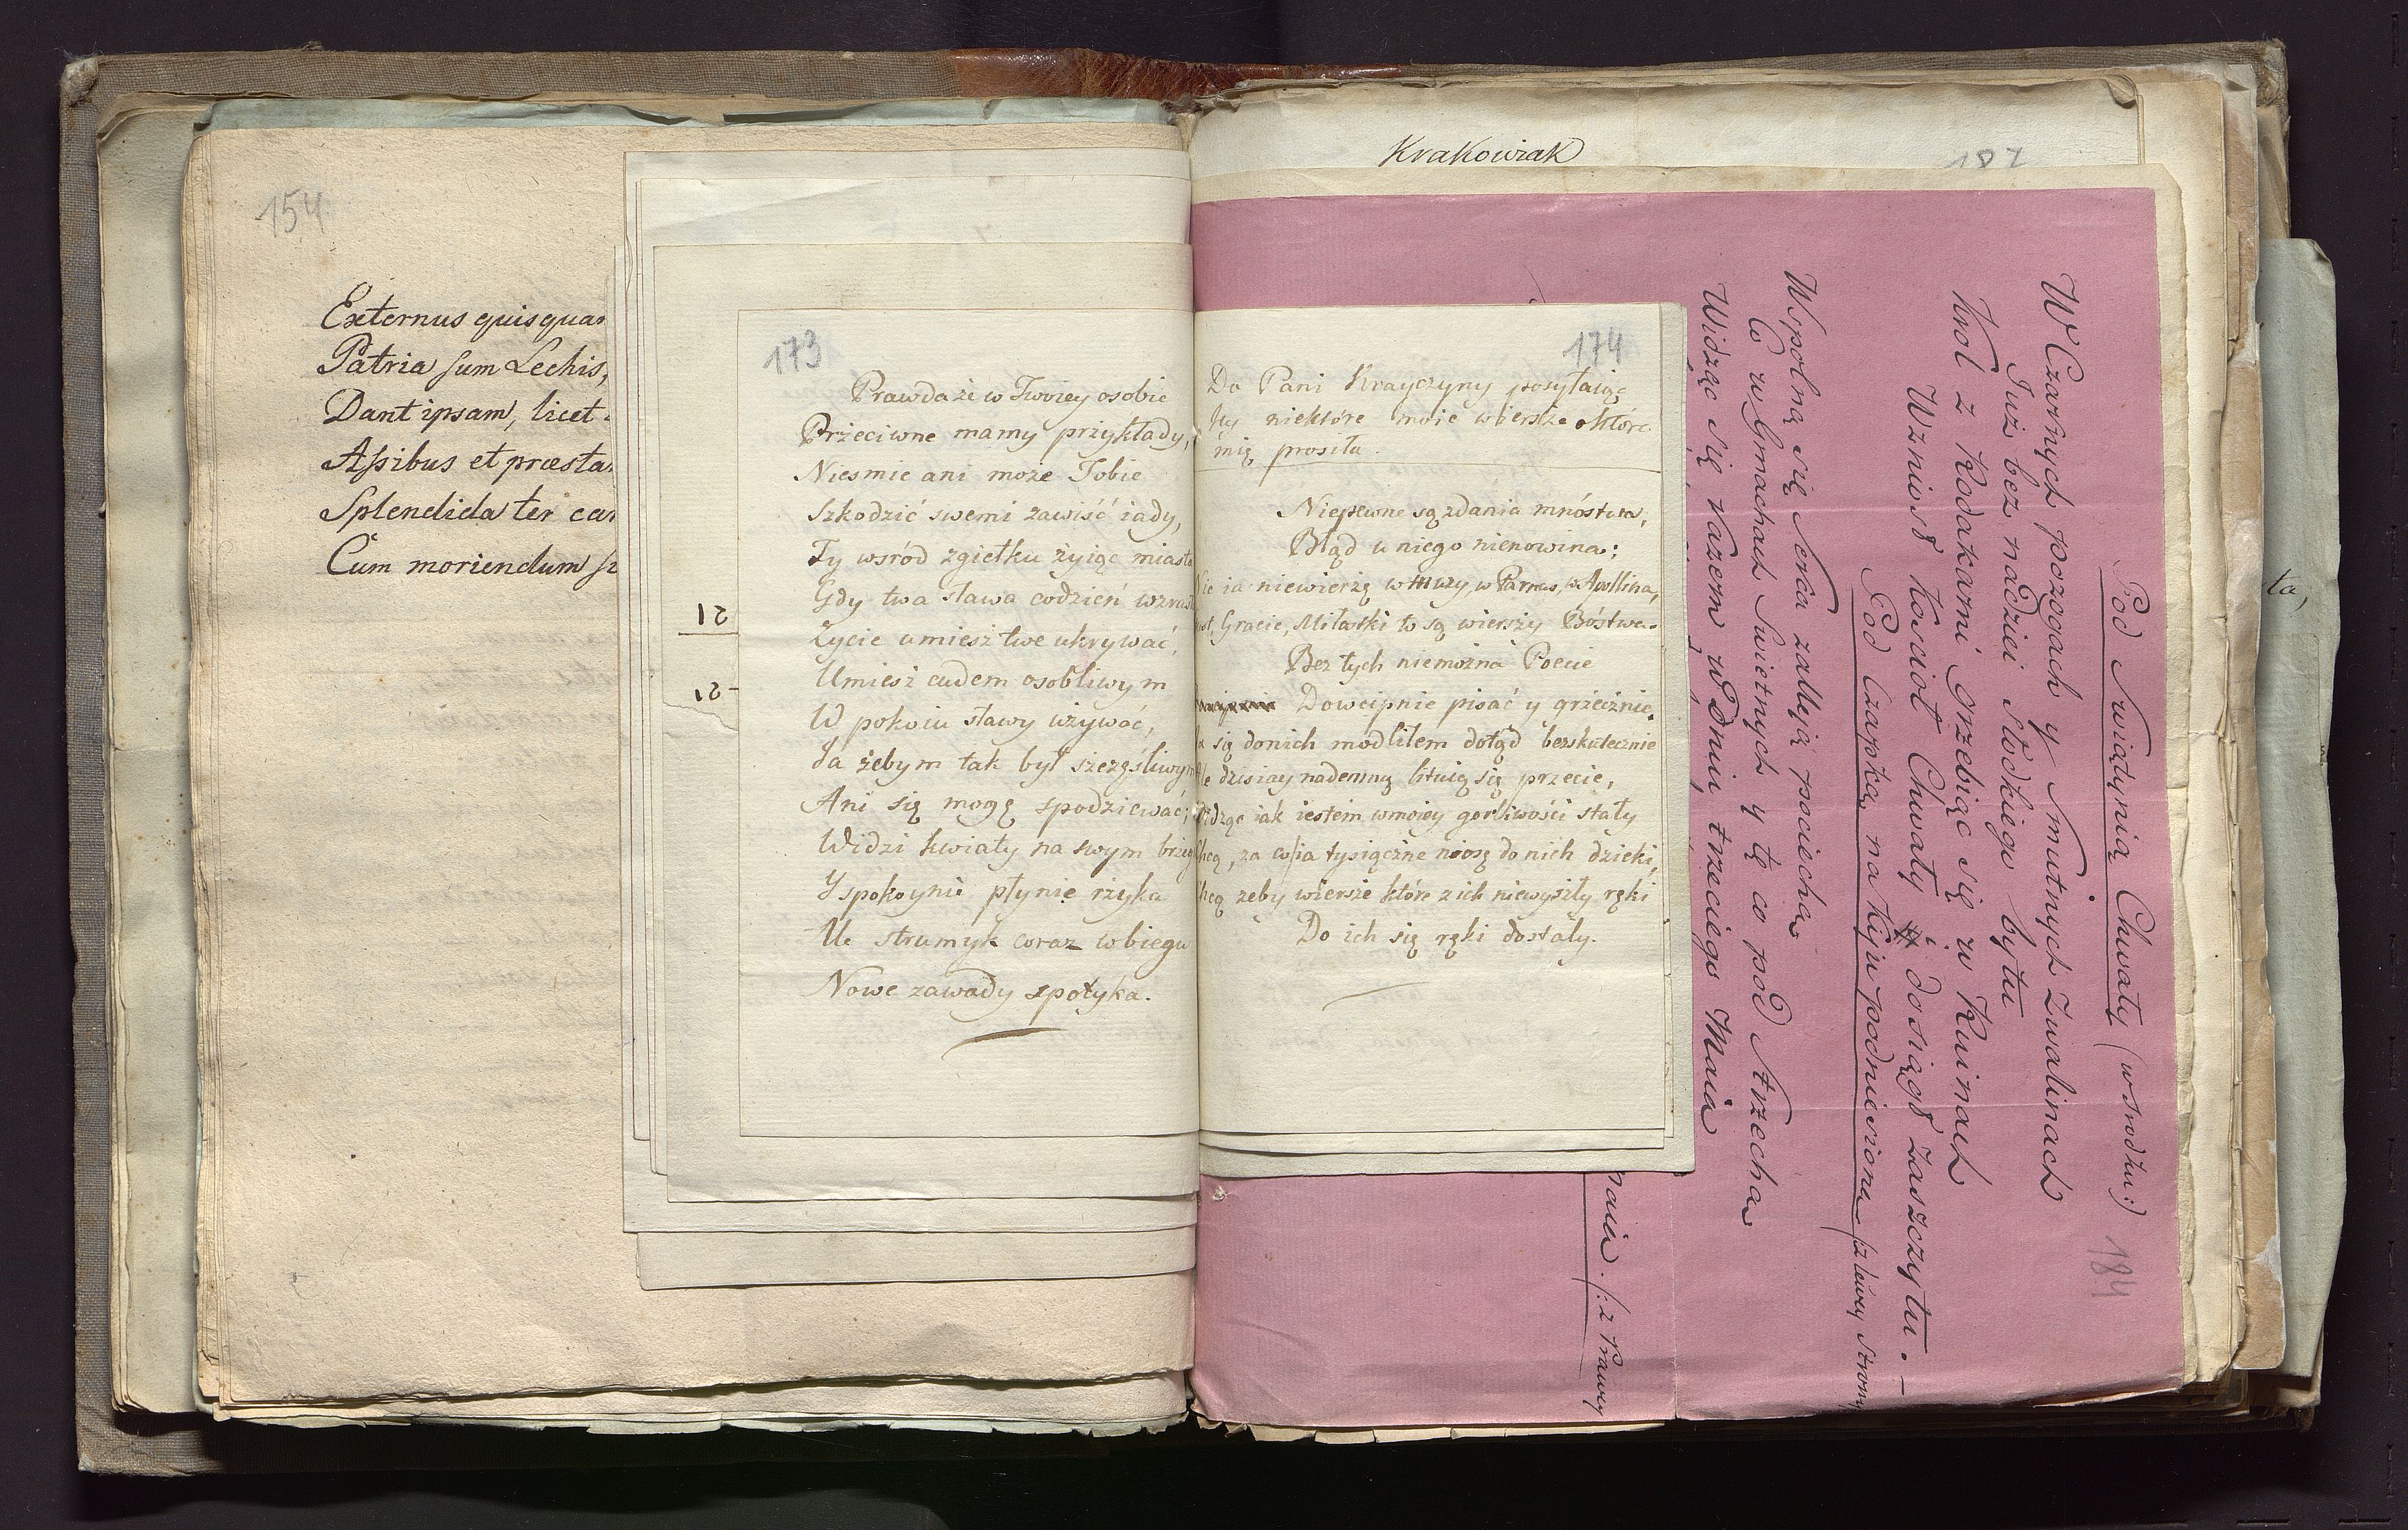 154
Externus quisquam
Patria sum Lechis,
Dant ipsam, licet
Assibus et praesta
Splendida ter
Cum moriendum
173
Prawda że w Twoiey osobie
Przeciwne mamy przykłady,
Niesmie ani może Tobie
Szkodzić swemi zawiść iady,
Ty wsród zgiełku żyiąc miasta
Gdy twa sława codzień wzrast
Życie umiesz twe ukrywać,
Umiesz cudem osobliwym
W pokoiu sławy używać,
Ja żebym tak był szczęśliwym
Ani się mogę spodziewać;
Widzi kwiaty na swym brzeg
Y spokoynie płynie rzyka
Ale strumyk coraz w biegu
Nowe zawady spotyka.
12
12-
174
Do Pani Krayczyny posyłaiąc
Jey niektóre moie wiersze o które
mię prosiła.
Niepewne są zdania mnóstwa,
Błąd u niego nienowina;
Nie ia niewierzę w Muzy, w Parnas, w Apollina,
Gust, Gracie, Miłostki to są wierszy Bóstwa.
Bez tych niemożna Poecie
Dowcipnie pisać y grzecznie.
Ja się donich modliłem dotąd bezskutecznie
Ale dzisiay nademną lituią się przecie,
Widząc iak iestem w moiey gorliwości stały
Chcą, za co ia tysiączne niosę do nich dzięki,
Chcą zeby wiersze które z ich niewyszły ręki
Do ich się ręki dostały.
Krakowiak
187
Pod Swiątynią Chwały (w srodku:)
184
W Czarnych pozogach y smutnych zwalinach
Już bez nadziei słodkiego bytu
Krol z Rodakami grzebiąc się w Ruinach
Wzniosł Koscioł Chwały i dosiągł zaszczytu.-
Pod Czapką na Kiju podniesioną (z lewey Strony
Wspolną się serca zalleją pociecha
Co w Gmachach Swietnych y tę co pod Strzecha
Widząc się razem w Dniu trzeciego Maia
(:z Prawey
ta,